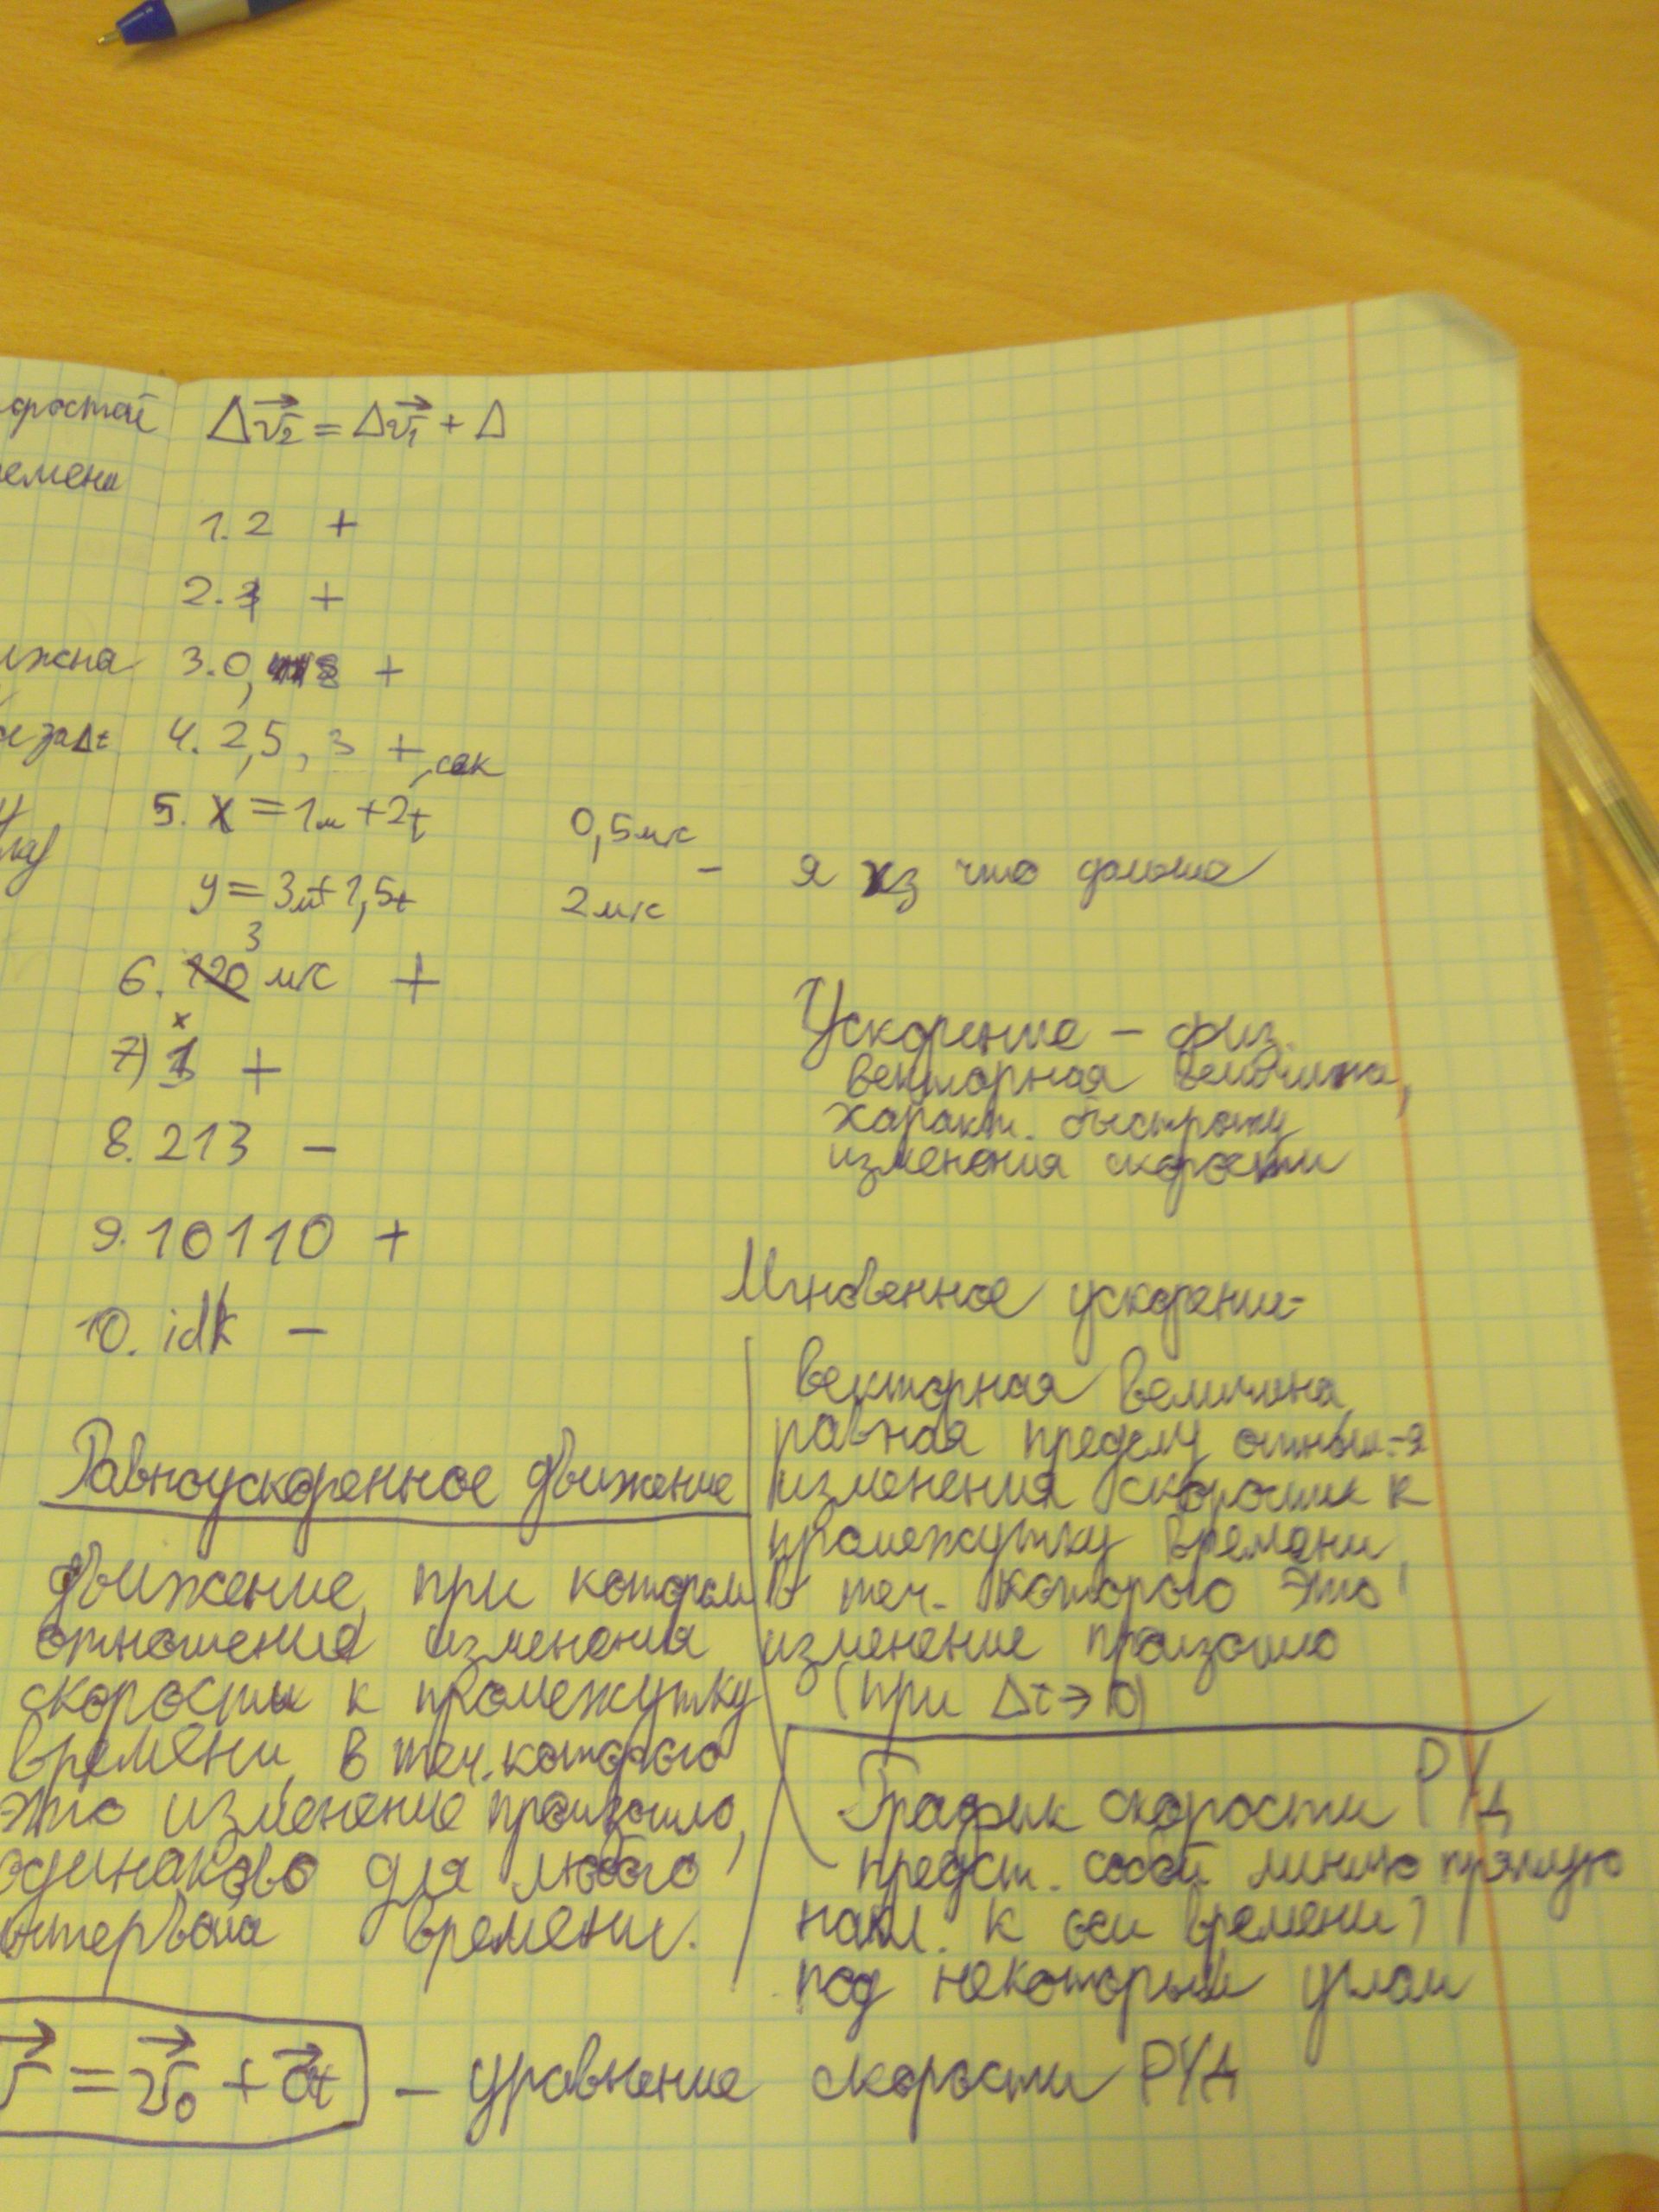 Δv⃗₂ = Δv⃗₁ + Δ
емени
1. 2 +
2. +
3. 0, +
за Δt
4. 2,5, 3 +
5. x = 1м + 2t
0,5 м/с
y = 3м + 1,5t
2 м/с
– я хз что дальше
3
6. 120 м/с +
x
7) +
8. 213 –
9. 10110 +
10. idk –
Ускорение – физ.
векторная величина,
характ. быстроту
изменения скорости
Мгновенное ускорение-
векторная величина,
равная пределу отнош-я
изменения скорости к
промежутку времени,
в теч. которого это
изменение произошло
(при Δt→0)
Равноускоренное движение
движение, при котором
отношение изменения
скорости к промежутку
времени, в теч. которого
это изменение произошло,
одинаково для любого
интервала времени.
График скорости РУД
предст. собой линию прямую
накл. к оси времени
под некоторым углом
v⃗ = v⃗₀ + a⃗t – уравнение скорости РУД